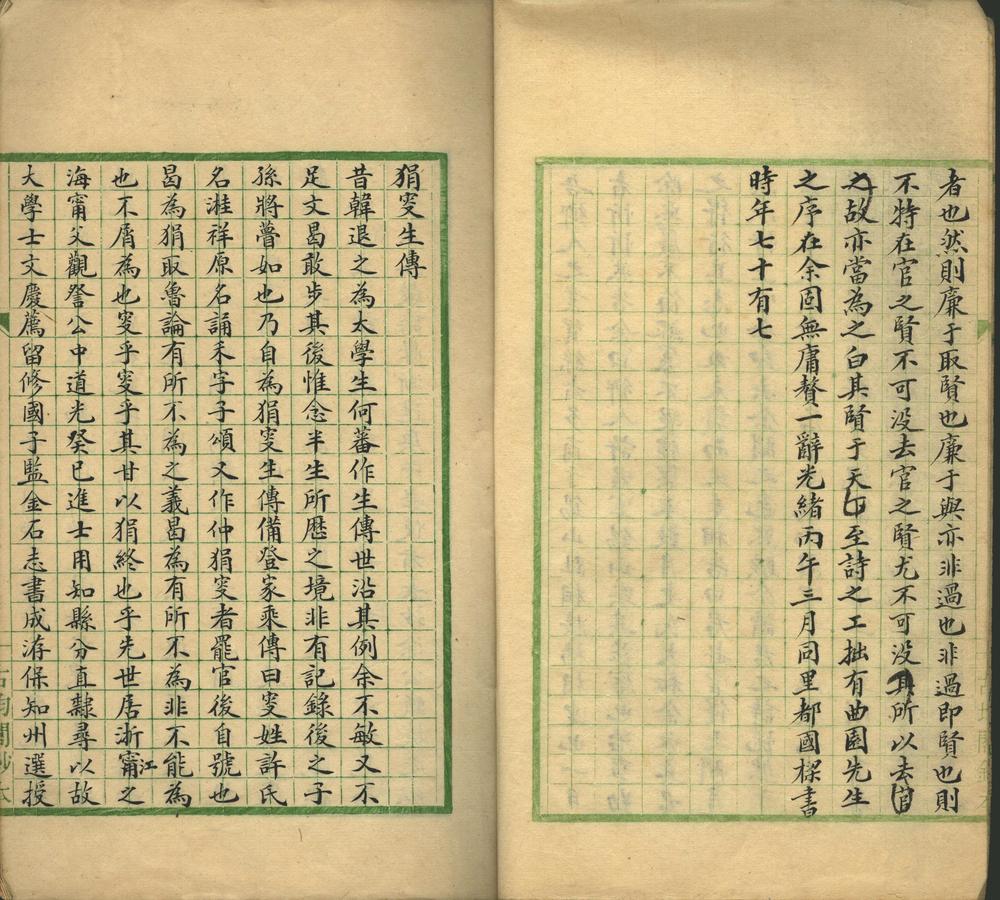 者也然則廉于取賢也廉于與亦非過也非過即賢也則
不特在官之賢不可没去官之賢尤不可没其所以去官
之故亦當為之白其賢于天下至詩之工拙有曲園先生
之序在余固無庸贅一辭光緒丙午三月同里都國樑書
時年七十有七
狷叜生傳
昔韓退之為太學生何蕃作生傳世沿其例余不敏又不
足文曷敢步其後惟念半生所歷之境非有記錄後之子
孫將瞢如也乃自為狷叜生傳備登家乘傳曰叜姓許氏
名溎祥原名誦禾字子頌又作仲狷叜者罷官後自號也
曷為狷取魯論有所不為之義曷為有所不為非不能為
也不屑為也叜乎叜乎其甘以狷終也乎先世居浙江甯之
海甯父觀詧公中道光癸巳進士用知縣分直隸尋以故
大學士文慶薦留修國子監金石志書成洊保知州選授